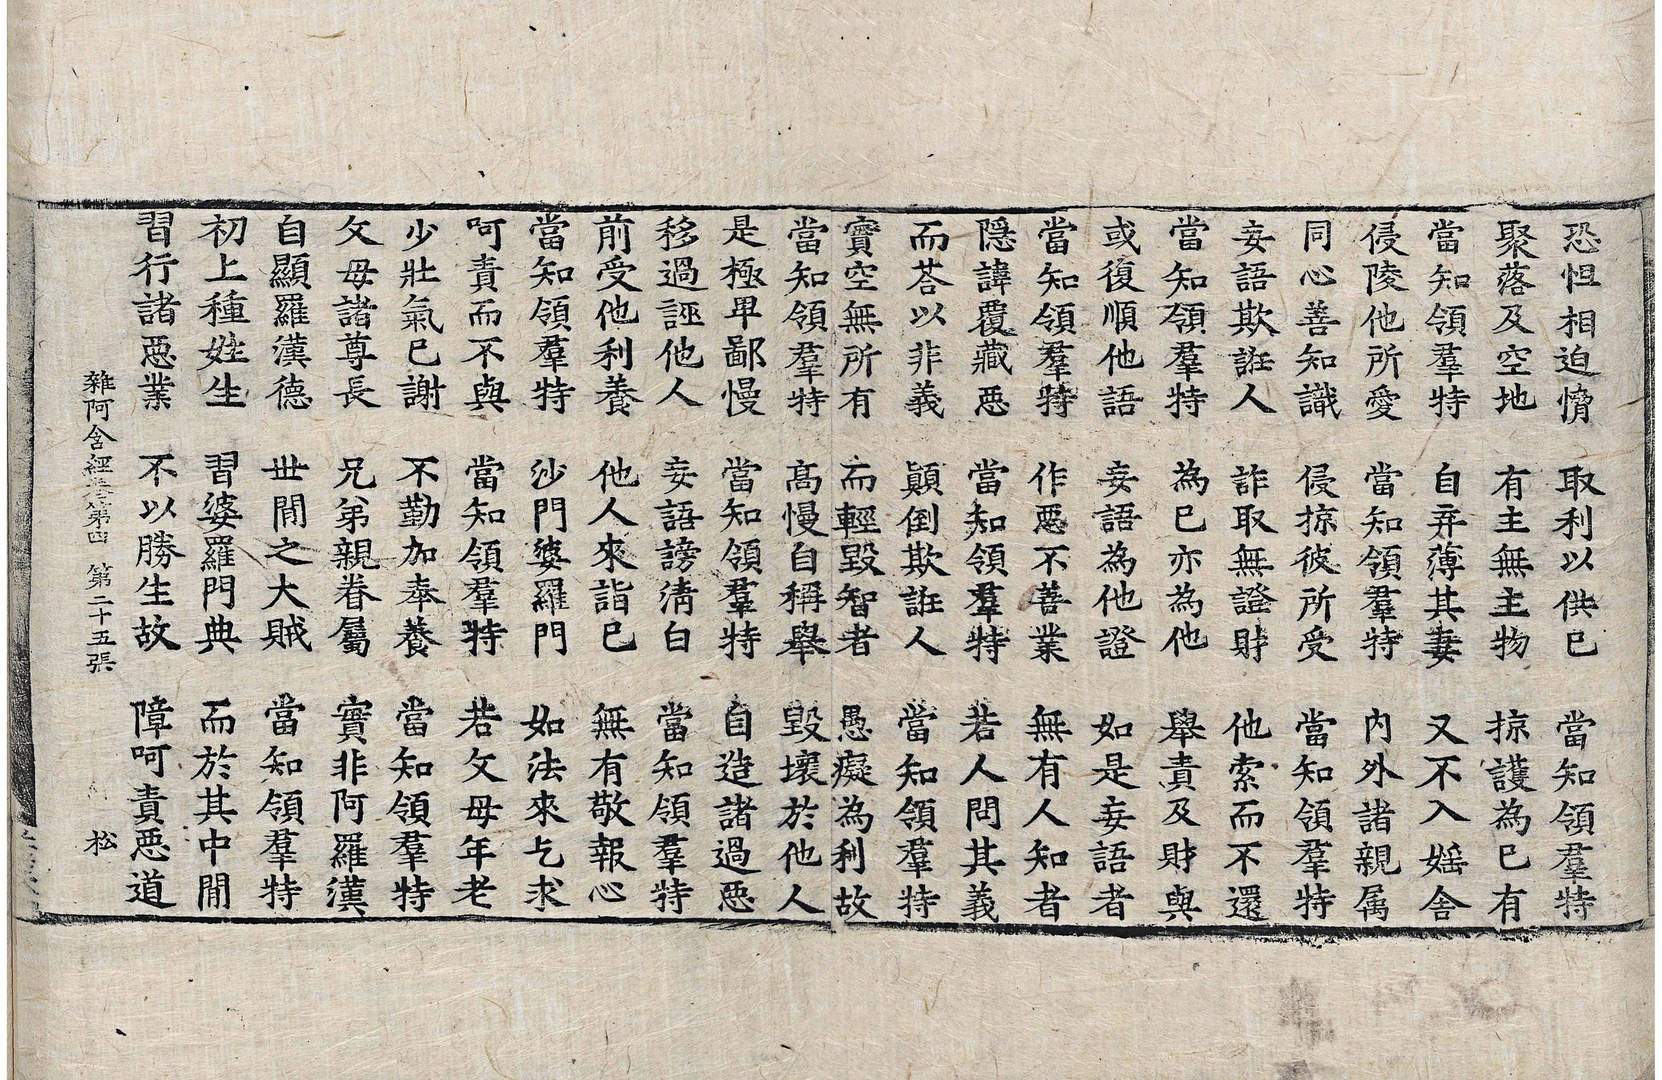 恐怛相迫愶　取利以供已　當知領羣特
聚落及空地　有主無主物　掠護為已有
當知領羣特　自弃薄其妻　又不入婬舍
侵陵他所愛　當知領羣特　內外諸親属
同心善知識　侵掠彼所受　當知領羣特
妄語欺誑人　詐取無證財　他索而不還
當知領羣特　為已亦為他　舉責及財與
或復順他語　妄語為他證　如是妄語者
當知領羣特　作惡不善業　無有人知者
隱諱覆藏惡　當知領羣特　若人問其義
而荅以非義　顚倒欺誑人　當知領羣特
實空無所有　而輕毀智者　愚癡為利故
當知領羣特　高慢自稱舉　毀壞於他人
是極卑鄙慢　當知領羣特　自造諸過惡
移過誣他人　妄語謗清白　當知領羣特
前受他利養　他人來詣已　無有敬報心
當知領羣特　沙門婆羅門　如法來乞求
呵責而不與　當知領羣特　若父母年老
少壯氣已謝　不勤加奉養　當知領羣特
父母諸尊長　兄弟親眷屬　實非阿羅漢
自顯羅漢德　世閒之大賊　當知領羣特
初上種姓生　習婆羅門典　而於其中閒
習行諸惡業　不以勝生故　障呵責惡道
雜阿含經卷第四　第二十五張　松